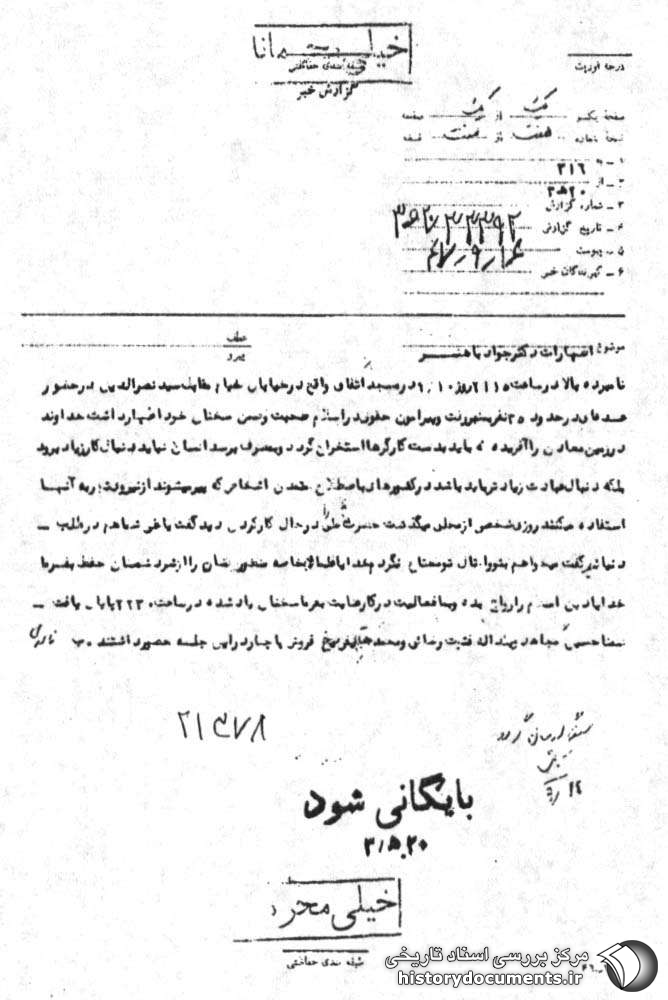 خیلی محرمانه
طبقه بندی حفاظتی
گزارش خبر
درجه فوریت
صفحه یکم از یک صفحه
نسخه شماره هفت از هفت نسخه
۱ ـ به ۳۱۶
۲ ـ از ۲۰ﻫ۳
۳ ـ شماره گزارش
۴ ـ تاریخ گزارش
۵ ـ پیوست
۶ ـ گیرندگان خبر
۴۷٫۹٫۱۴
موضوع اظهارات دکتر جواد باهنر
عطف
پیرو
نامبرده بالا در ساعت ۲۱۱۵ روز در مسجد اتفاق واقع در خیابان خیام مقابل سید نصرالدین در حضور
عده‌ای در حدود ۳۵۰ نفر بمنبر رفت و پیرامون حقوق در اسلام صحبت و ضمن سخنان خود اظهار داشت خداوند
در زمین معادن را آفریده که باید بدست کارگرها استخراج گردد و بمصرف برسد انسان نباید دنبال کار زیاد برود
بلکه دنبال عبادت زیادتر باید باشد در کشورهای باصطلاح متمدن اشخاص که پیر میشوند از نیرو به آنها
استفاده میکنند روزی شخصی از محلی میگذشت حضرت علی را در حال کار کردن دید گفت یا علی شما هم در طلب ـ
دنیا گفت میخواهم بتو و امثال تو محتاج نگردم خدایا علما بخاصه منظور بمان را از شر دشمنان حفظ بفرما
خدایا دین اسلام را رواج بده و بما فعالیت در کار عنایت بفرما سخنان یاد شده در ساعت ۲۲۳۰ پایان یافت ـ
ضمنا حسین مجاهد یداله رضائی و محمد فروش پاچنار در این جلسه حضور داشتند
۲۱۴۷۸
بایگانی شود
۲۰ﻫ۳
خیلی محرمانه
طبقه بندی حفاظتی
مرکز بررسی اسناد تاریخی
historydocuments.ir